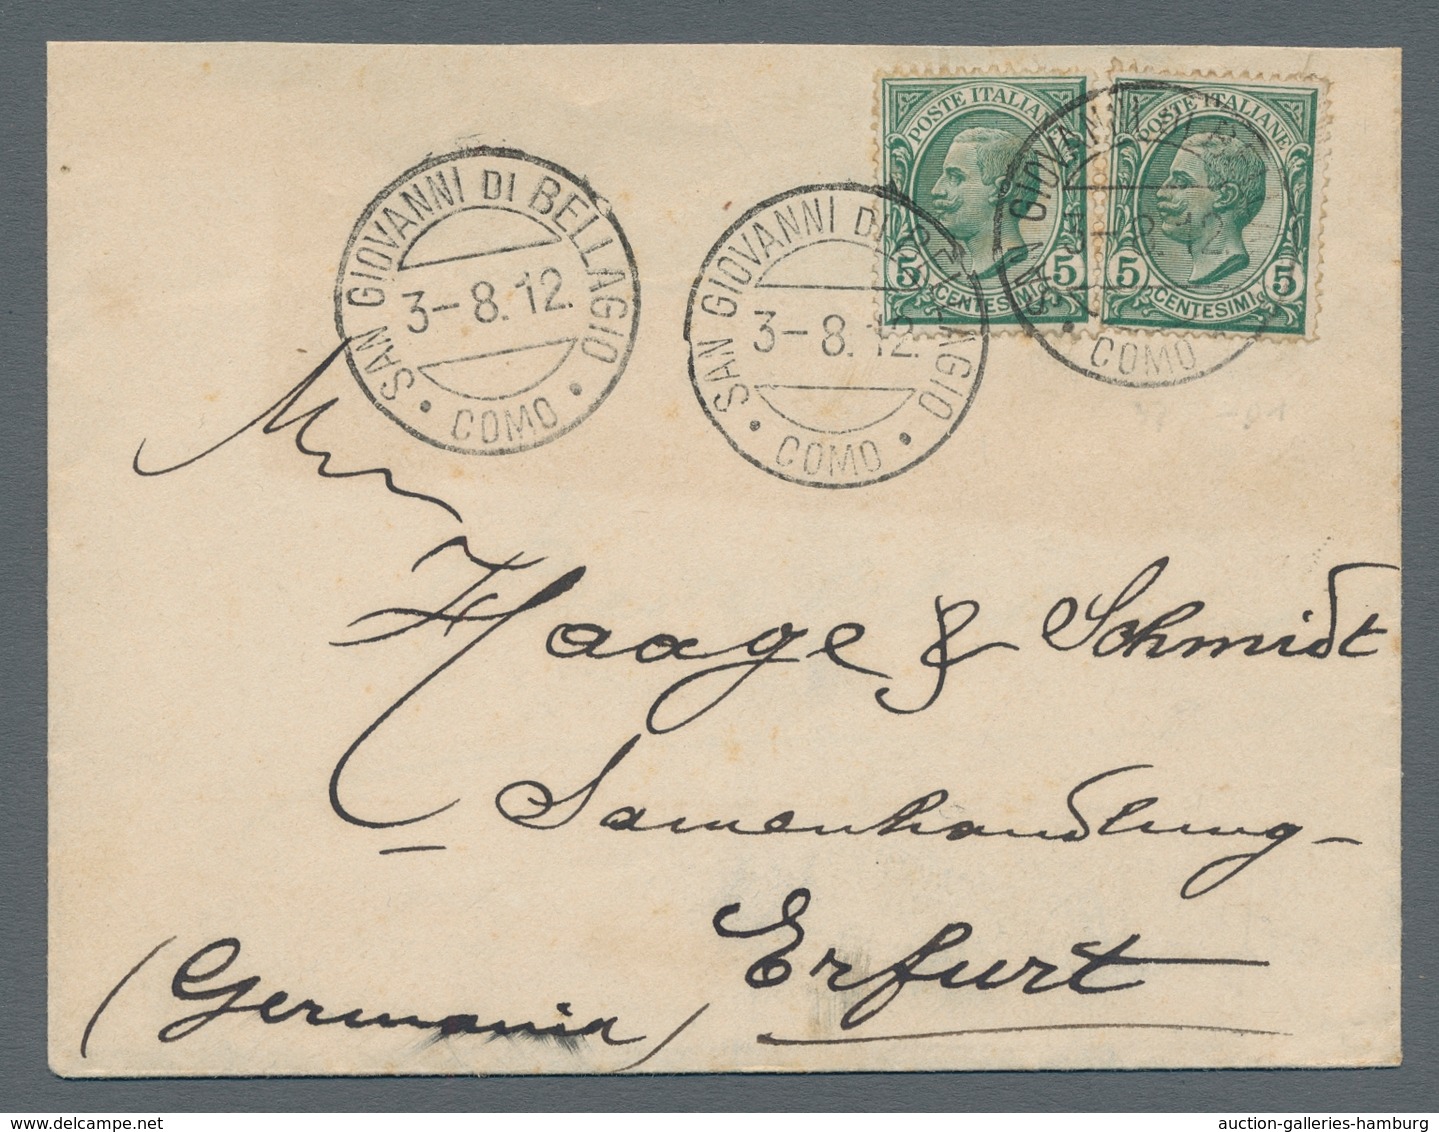 POSTE ITALIANE
5 5
CENTESIMI
POSTE ITALIANE
5 5
CENTESIMI
SAN GIOVANNI DI BELLAGIO
3-8.12.
• COMO •
SAN GIOVANNI DI BELLAGIO
3-8.12.
• COMO •
SAN GIOVANNI DI BELLAGIO
3-8.12.
• COMO
Haage & Schmidt
Samenhandlung-
Erfurt
(Germania)
www.delcampe.net
auction-galleries-hamburg